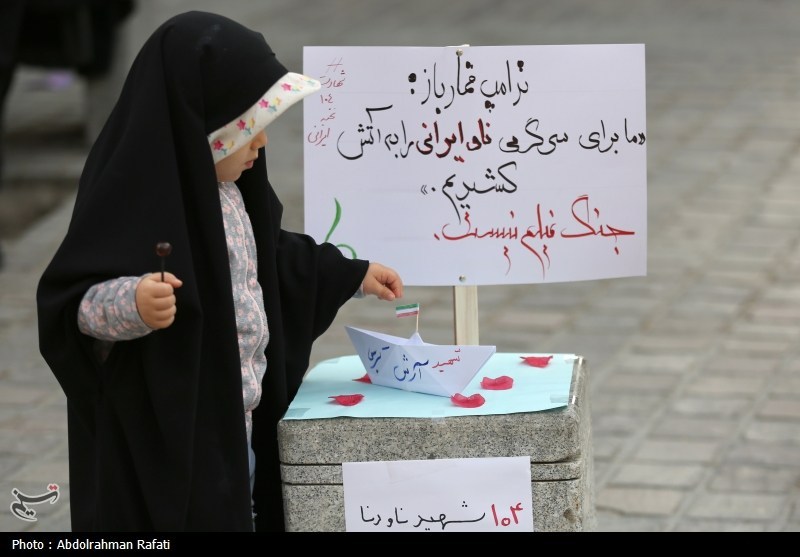 ترامپ قمارباز:
«ما برای سرگرمی ناو ایرانی را به آتش
کشیدیم.»
جنگ فیلم نیست.
#
۱۰۴
ایرانی
شهید
آرش
۱۰۴ شهید ناو دنا
تسنیم
Photo : Abdolrahman Rafati